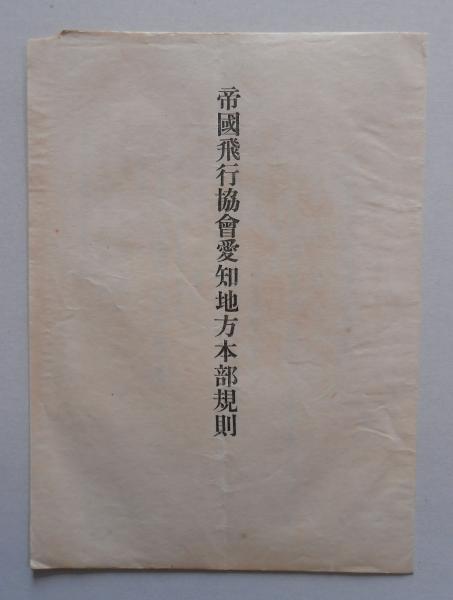 帝國飛行協會愛知地方本部規則